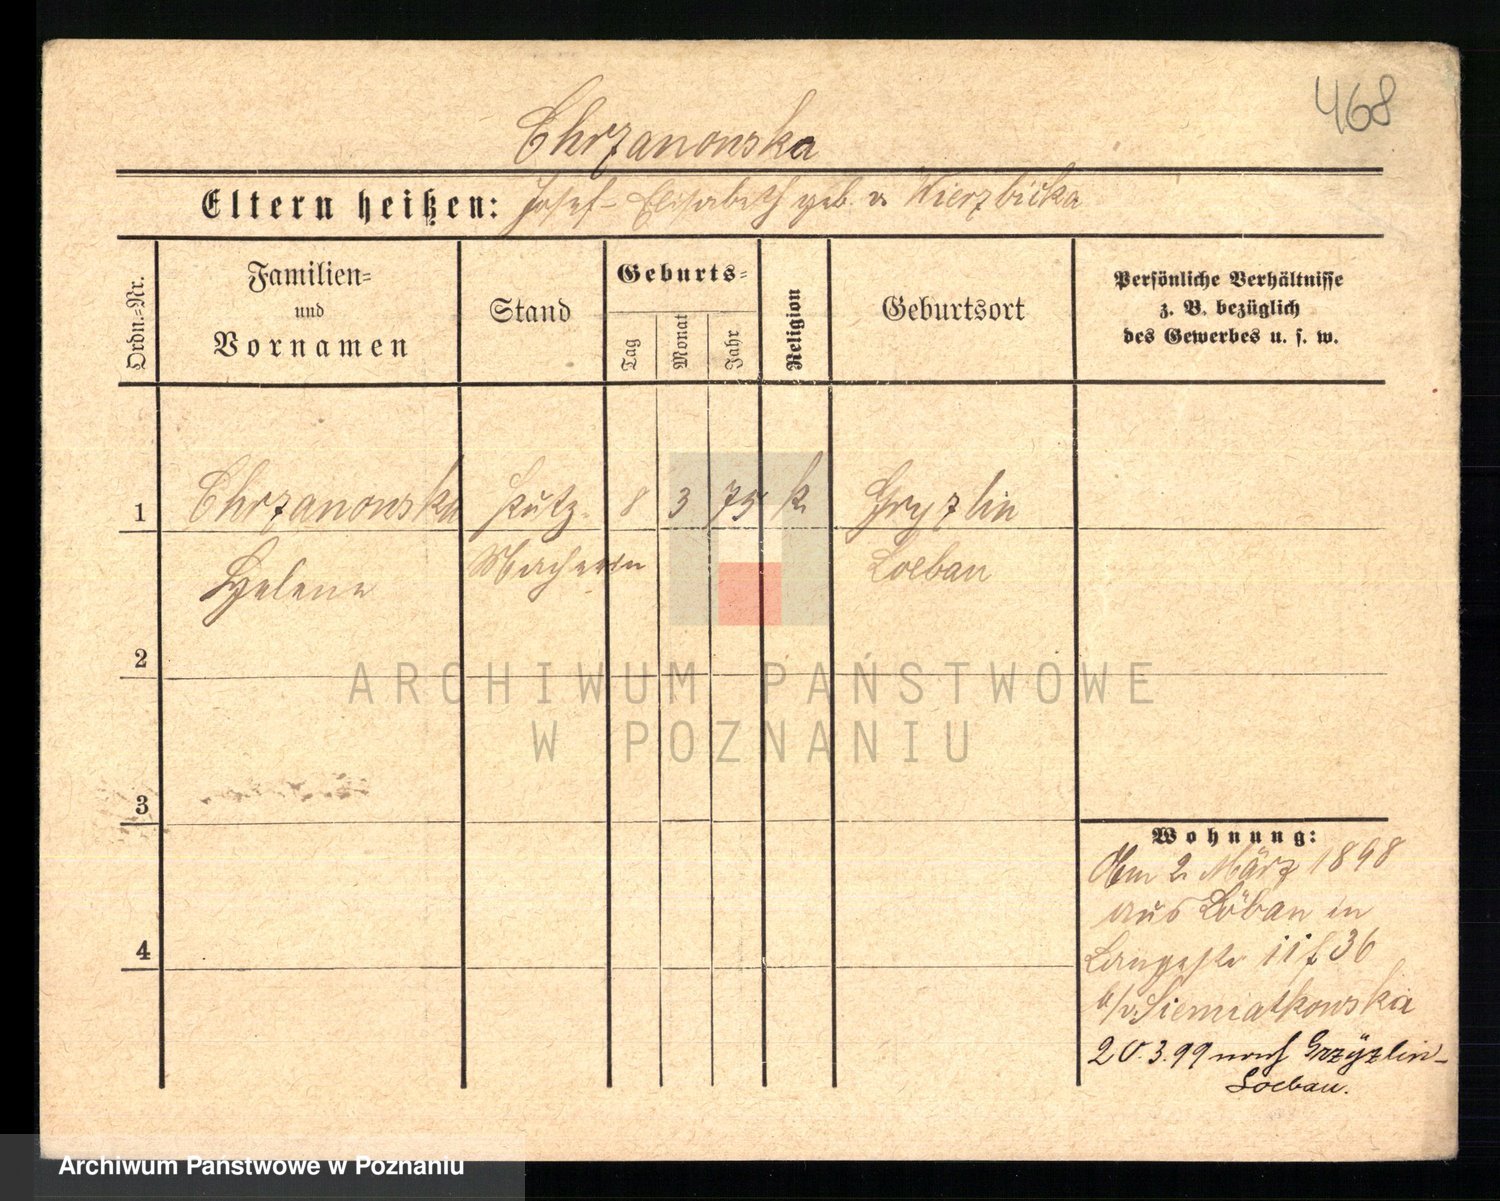 468
Chrzanowska
Eltern heißen: Josef - Elisabeth geb. v. Wierzbicka
Ordn.=Nr.
Familien=
und
Vornamen
Stand
Geburts=
Tag
Monat
Jahr
Religion
Geburtsort
Persönliche Verhältnisse
z. B. bezüglich
des Gewerbes u. s. w.
1 Chrzanowska Putz- 8 3 75 k. Gryzlin
Helene Macherin Loebau
2
ARCHIWUM PAŃSTWOWE
W POZNANIU
3
Wohnung:
Am 2. März 1898
aus Löbau in
Langestr 11
b/v. Siemiatkowska
4
20.3.99 nach Grzÿzlin-
Loebau.
Archiwum Państwowe w Poznaniu